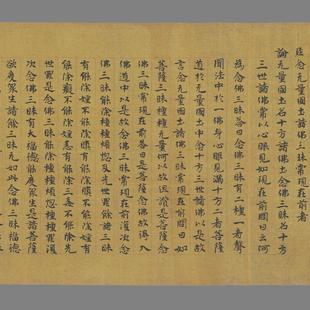 經念无量國土諸佛三昧常現在前者
論无量國土名十方諸佛土念佛三昧名十方
三世諸佛常以心眼見如現在前問曰云何
為念佛三昧答曰念佛三昧有二種一者聲
聞法中於一佛身心眼見滿十方二者菩薩
道於无量國土中念十方三世諸佛以是故
言念无量國土諸佛三昧常現在前問曰如
菩薩三昧種種无量何以故但讚是菩薩念
佛三昧常現在前答曰是菩薩念佛故得入
佛道中以是故念佛三昧常現在前復次念
佛三昧能除種種煩惱及先世罪餘諸三昧
有能除婬不能除瞋有能除瞋不能除婬有
能除癡不能除婬恚有能除三毒不能除先
世罪是念佛三昧能除種種煩惱種種罪復
次念佛三昧有大福德能度衆生是諸菩薩
欲度衆生諸餘三昧无如此念佛三昧福德